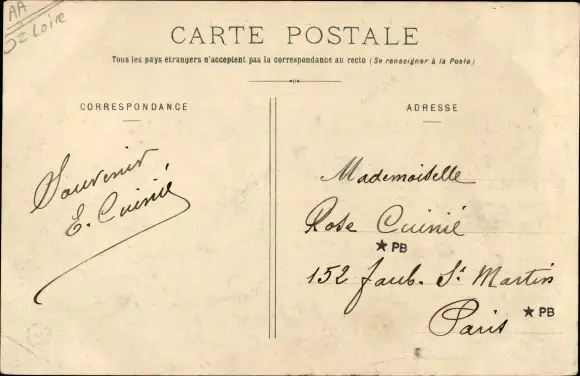 AA
S = Loire
CARTE POSTALE
Tous les pays étrangers n'acceptent pas la correspondance au recto (Se renseigner à la Poste)
CORRESPONDANCE
Souvenir
E. Cuinié
ADRESSE
Mademoiselle
Rose Cuinié
★ PB
152 Faub. St Martin
Paris
★ PB